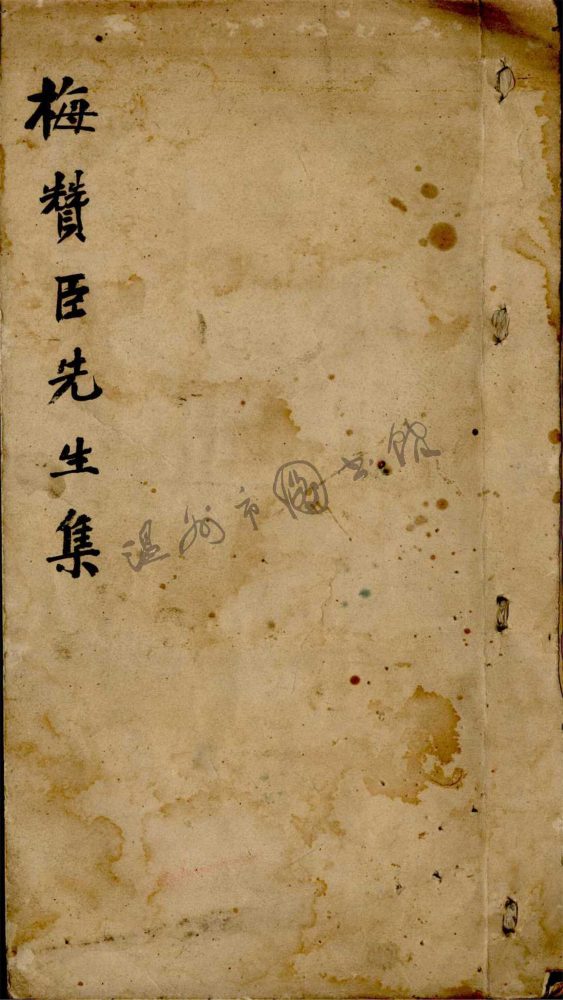 梅贊臣先生集
温州市图书馆